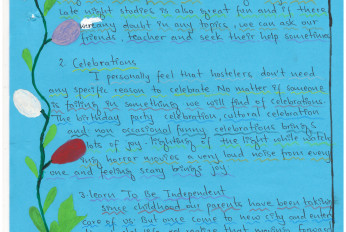 Late night studies is also great fun and if there
any doubt in any topics, we can ask our
friends, teacher and seek their help sometimes
2. Celebrations
I personally feel that hostelers don't need
any specific reason to celebrate. No matter if someone
is failing in something we will find of celebrations.
The birthday party celebration, cultural celebration
and non occasional funny celebrations brings
lots of joy. lighting if the light while watch
ing horror movies a very loud noise from every
one and feeling scary brings joy
3. learn To Be Independent
Since childhood our parents have been taking
care of us. But once come to new city and enter
realize that moving forward